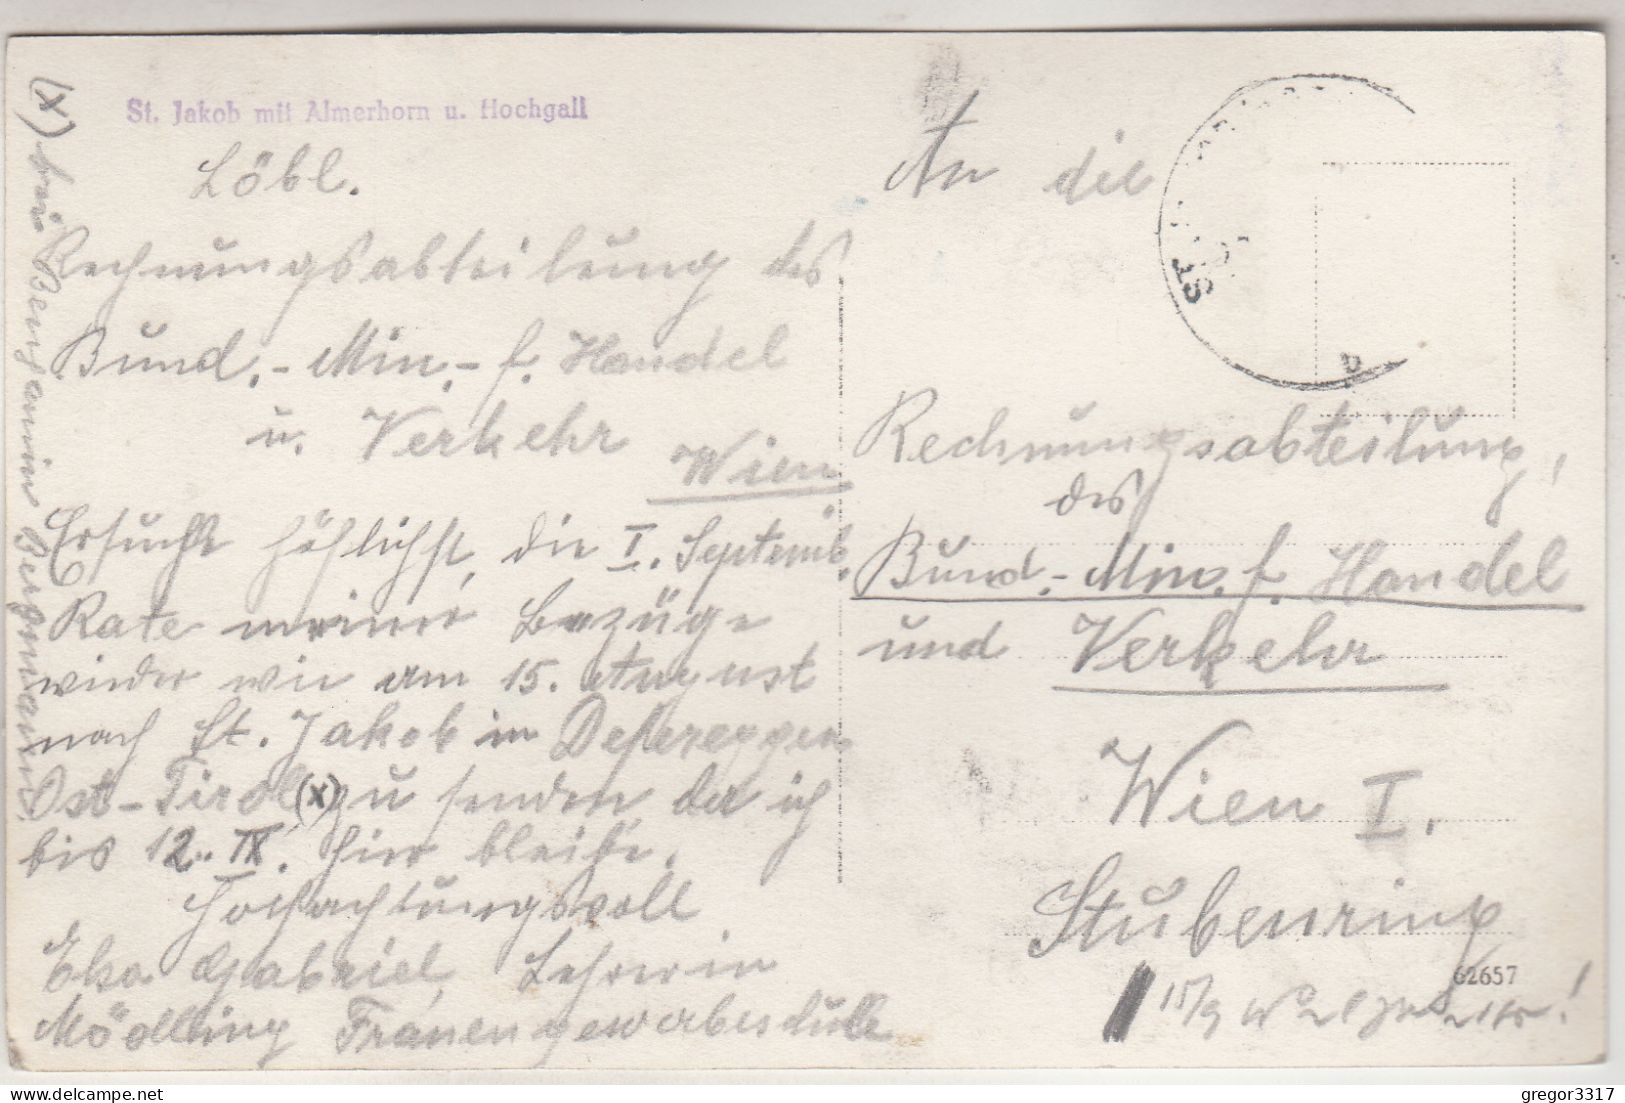 St. Jakob mit Almerhorn u. Hochgall
Löbl.
Rechnungsabteilung des
Bund.-Min.- f. Handel
u. Verkehr
Wien
Ersuche höflichst, die I. Septemb.
Rate meiner Bezüge
wieder wie am 15. August
nach St. Jakob in Defereggen
Ost-Tirol (x) zu senden, da ich
bis 12. IX. hier bleibe.
Hochachtungsvoll
Gabriel, Lehrerin
Mödling Frauengewerbeschule
(x) bei Benjamin Bergmann
An die
ST
b
Rechnungsabteilung
des
Bund.-Min. f. Handel
und Verkehr
Wien I.
Stubenring
62657
15/9